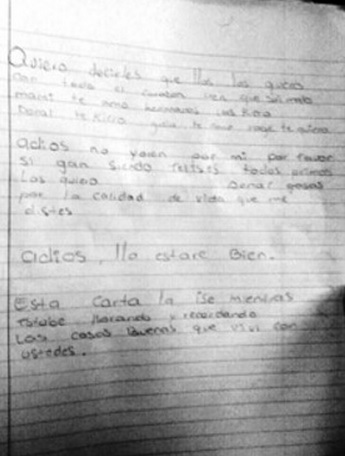 Quiero decirles que llo los quiero
con todo el corazon
mami te amo hermanos los Kiero
te Kiero te amo te quiero
adios no yoren por mi por favor
si gan siendo felises todos
Los quiero gracias
por la calidad de vida que me
distes
adios, llo estare Bien.
Esta carta la ise mientras
estaba llorando y recordando
Las cosas Buenas que vivi con
ustedes.